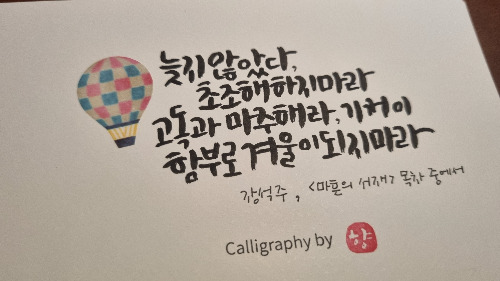 늦지 않았다,
초조해하지마라
고독과 마주해라, 기꺼이
함부로 겨울이되지마라
장석주, <마흔의 서재> 목차 중에서
Calligraphy by 향